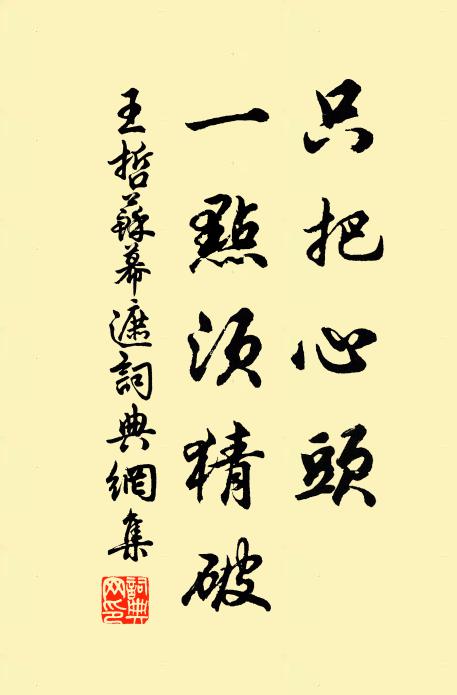 只把心頭
一點須猜破
王哲蘇幕遮詞典網集
詞典網印